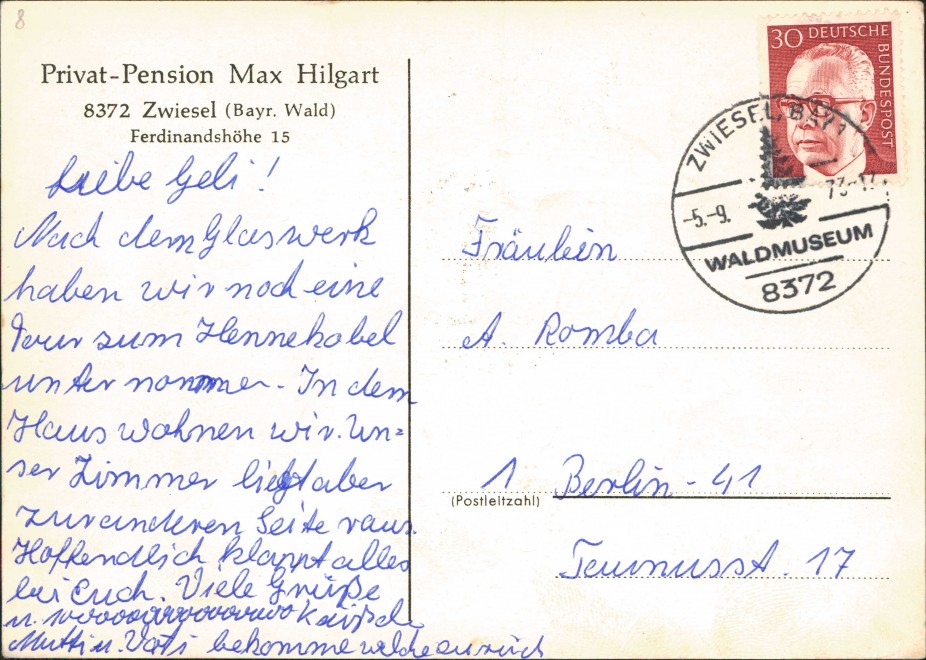 8
Privat-Pension Max Hilgart
8372 Zwiesel (Bayr. Wald)
Ferdinandshöhe 15
Liebe Geli!
Nach dem Glaswerk
haben wir noch eine
Tour zum Hennekobel
unternommen. In dem
Haus wohnen wir. Un=
ser Zimmer liegt aber
zur anderen Seite raus.
Hoffendlich klappt alles
bei Euch. Viele Grüße
u. 10000000000000000
Mutti u. Vati bekomme welche zurück
30 DEUTSCHE
BUNDESPOST
ZWIESEL, BAY 1
-5.-9. 73-17
WALDMUSEUM
8372
Fräulein
A. Romba
1 Berlin-41
(Postleitzahl)
Taunusst. 17